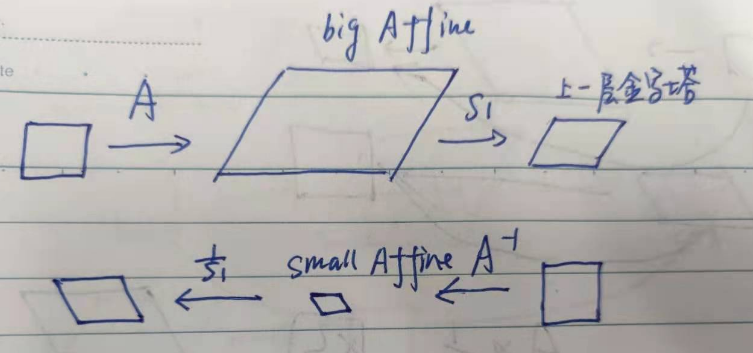 big Affine
te
A
S1
上一层金字塔
1/S1
small Affine
A⁻¹